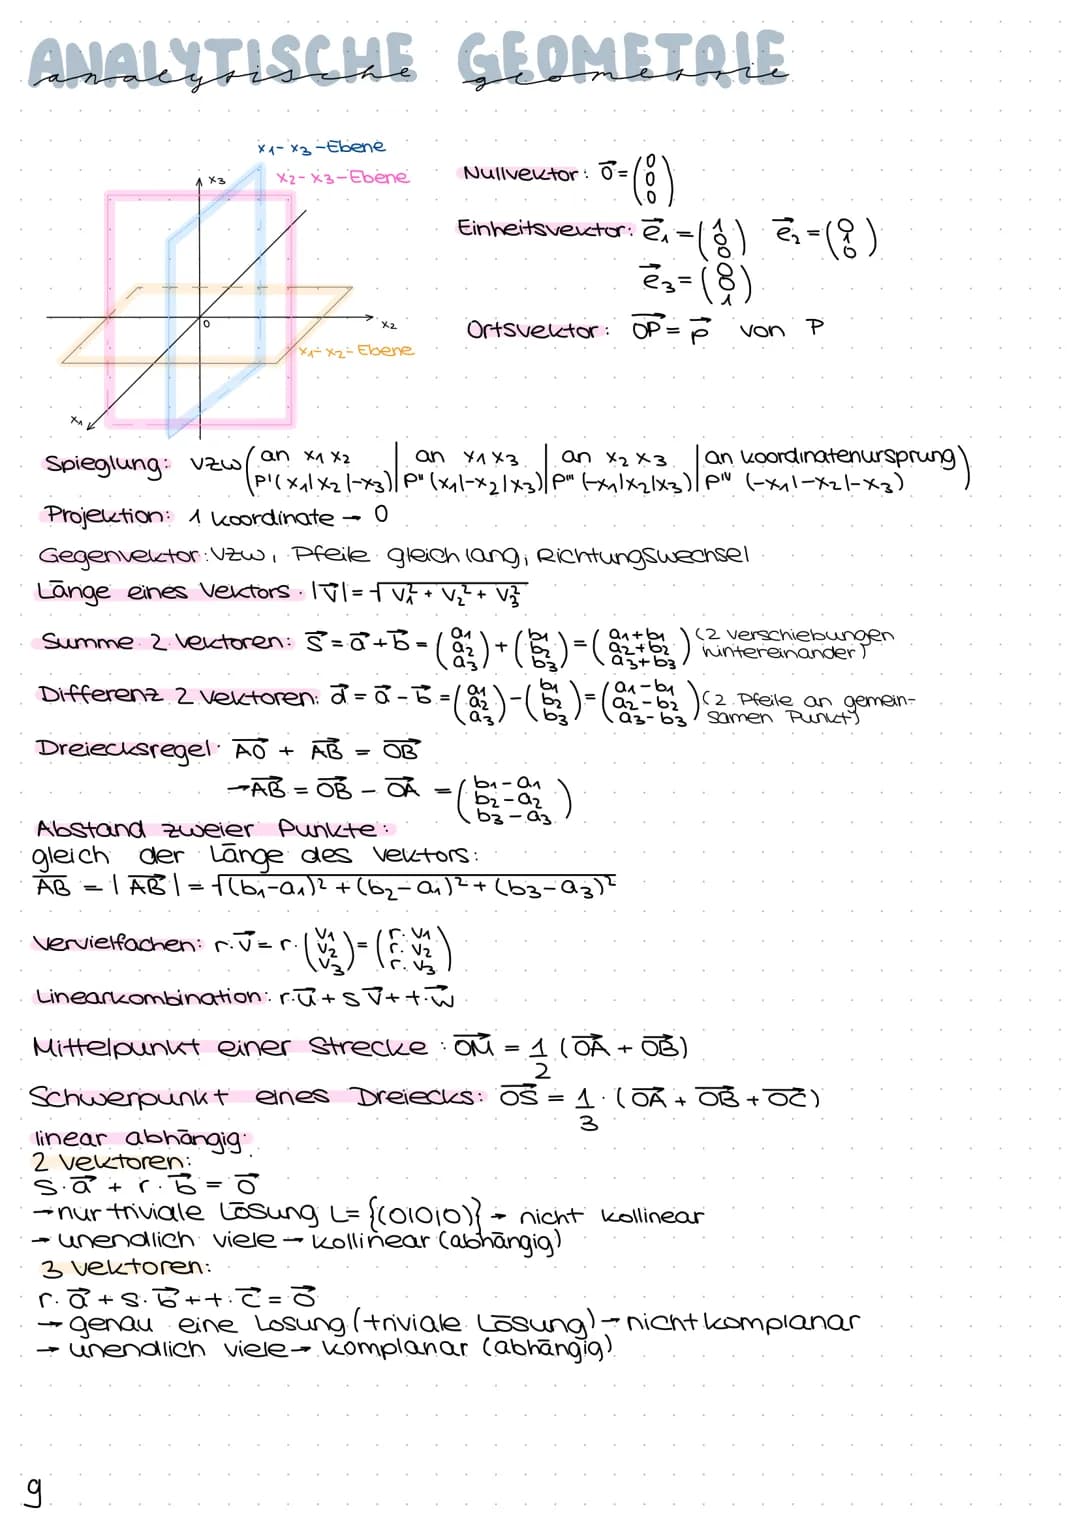 ANALYTISCHE GEOMETRIE
analytische geometrie
x₁-x₃-Ebene
x₂-x₃-Ebene
x₃
0
x₂
x₁-x₂-Ebene
x₁
Nullvektor: o⃗ = (0 0 0)
Einheitsvektor: e⃗₁ = (1 0 0) e⃗₂ = (0 1 0)
e⃗₃ = (0 0 1)
Ortsvektor: OP⃗ = p⃗ von P
Spieglung: vzw (an x₁x₂ | an x₁x₃ | an x₂x₃ | an Koordinatenursprung)
P'(x₁|x₂|-x₃) | P"(x₁|-x₂|x₃) | P"'(-x₁|x₂|x₃) | Pᴵⱽ (-x₁|-x₂|-x₃)
Projektion: 1 Koordinate → 0
Gegenvektor: vzw, Pfeile gleich lang, Richtungswechsel
Länge eines Vektors: |v⃗| = √v₁² + v₂² + v₃²
Summe 2 Vektoren: s⃗ = a⃗ + b⃗ = (a₁ a₂ a₃) + (b₁ b₂ b₃) = (a₁+b₁ a₂+b₂ a₃+b₃) (2 Verschiebungen hintereinander)
Differenz 2 Vektoren: d⃗ = a⃗ - b⃗ = (a₁ a₂ a₃) - (b₁ b₂ b₃) = (a₁-b₁ a₂-b₂ a₃-b₃) (2 Pfeile an gemeinsamen Punkt)
Dreiecksregel: AO⃗ + AB⃗ = OB⃗
→AB⃗ = OB⃗ - OA⃗ = (b₁-a₁ b₂-a₂ b₃-a₃)
Abstand zweier Punkte:
gleich der Länge des Vektors:
A̅B̅ = |AB⃗| = √(b₁-a₁)² + (b₂-a₁)² + (b₃-a₃)²
Vervielfachen: r·v⃗ = r·(v₁ v₂ v₃) = (r·v₁ r·v₂ r·v₃)
Linearkombination: r·u⃗ + s v⃗ + t·w⃗
Mittelpunkt einer Strecke: OM⃗ = 1/2 (OA⃗ + OB⃗)
Schwerpunkt eines Dreiecks: OS⃗ = 1/3 · (OA⃗ + OB⃗ + OC⃗)
linear abhängig:
2 Vektoren:
s·a⃗ + r·b⃗ = o⃗
→ nur triviale Lösung L= {(0|0|0)} → nicht kollinear
→ unendlich viele → kollinear (abhängig)
3 Vektoren:
r·a⃗ + s·b⃗ + t·c⃗ = o⃗
→ genau eine Lösung (triviale Lösung) → nicht komplanar
→ unendlich viele → komplanar (abhängig)
9